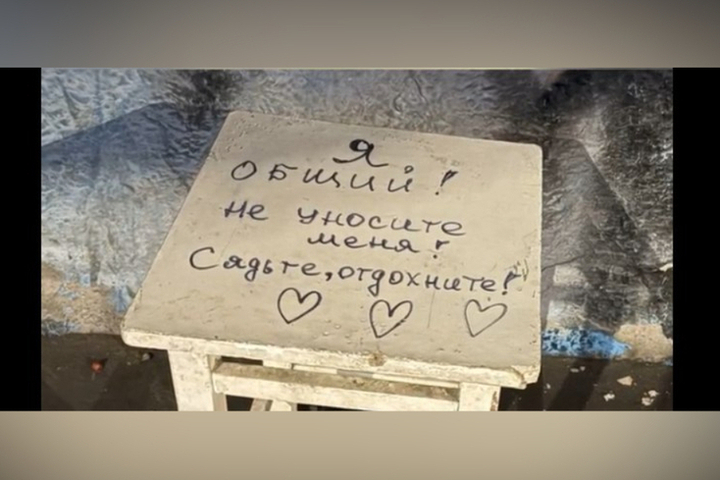 Я
ОБЩИЙ!
Не уносите
меня!
Сядьте, отдохните!